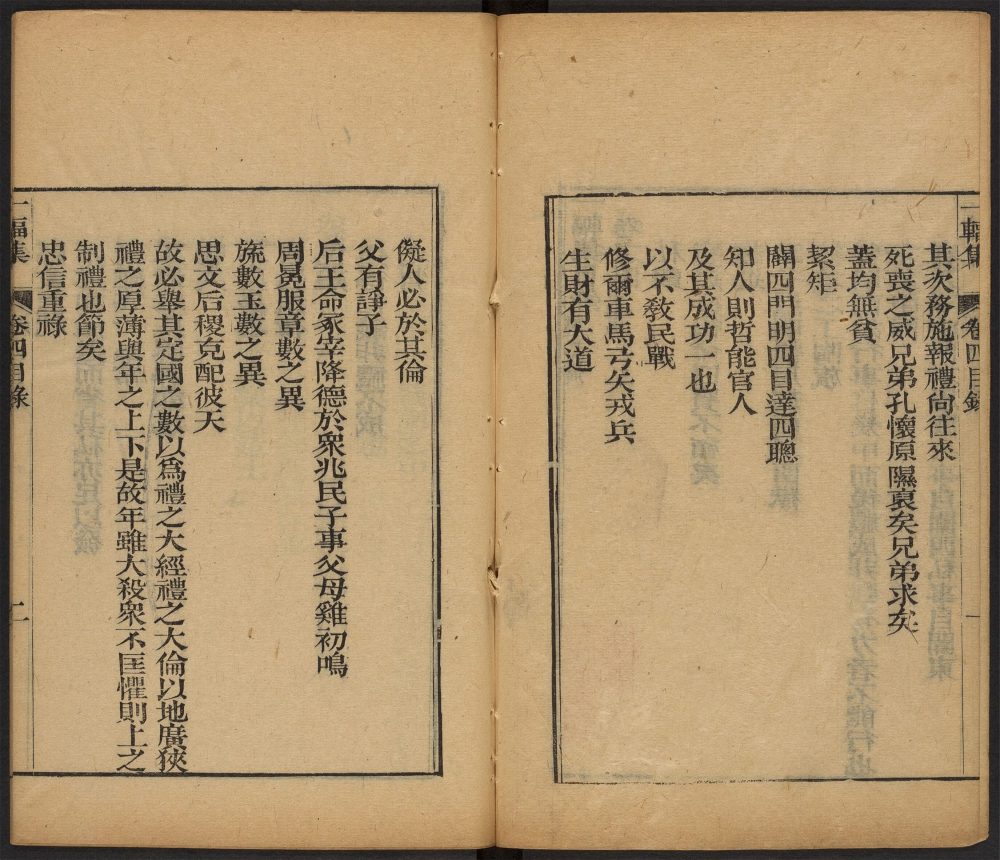 一輻集 卷四目錄 一
其次務施報禮尙往來
死喪之威兄弟孔懷原隰裒矣兄弟求矣
蓋均無貧
絜矩
闢四門明四目達四聰
知人則哲能官人
及其成功一也
以不敎民戰
修爾車馬弓矢戎兵
生財有大道
儗人必於其倫
父有諍子
后王命冢宰降德於衆兆民子事父母雞初鳴
周冕服章數之異
旒數玉數之異
思文后稷克配彼天
故必舉其定國之數以爲禮之大經禮之大倫以地廣狹
禮之厚薄與年之上下是故年雖大殺衆不匡懼則上之
制禮也節矣
忠信重祿
一輻集 卷四目錄 二